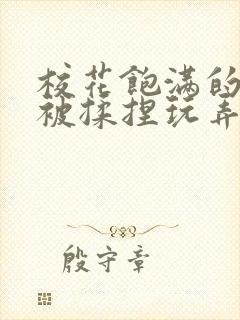 校花飽满的
被揉捏玩弄
殷守章